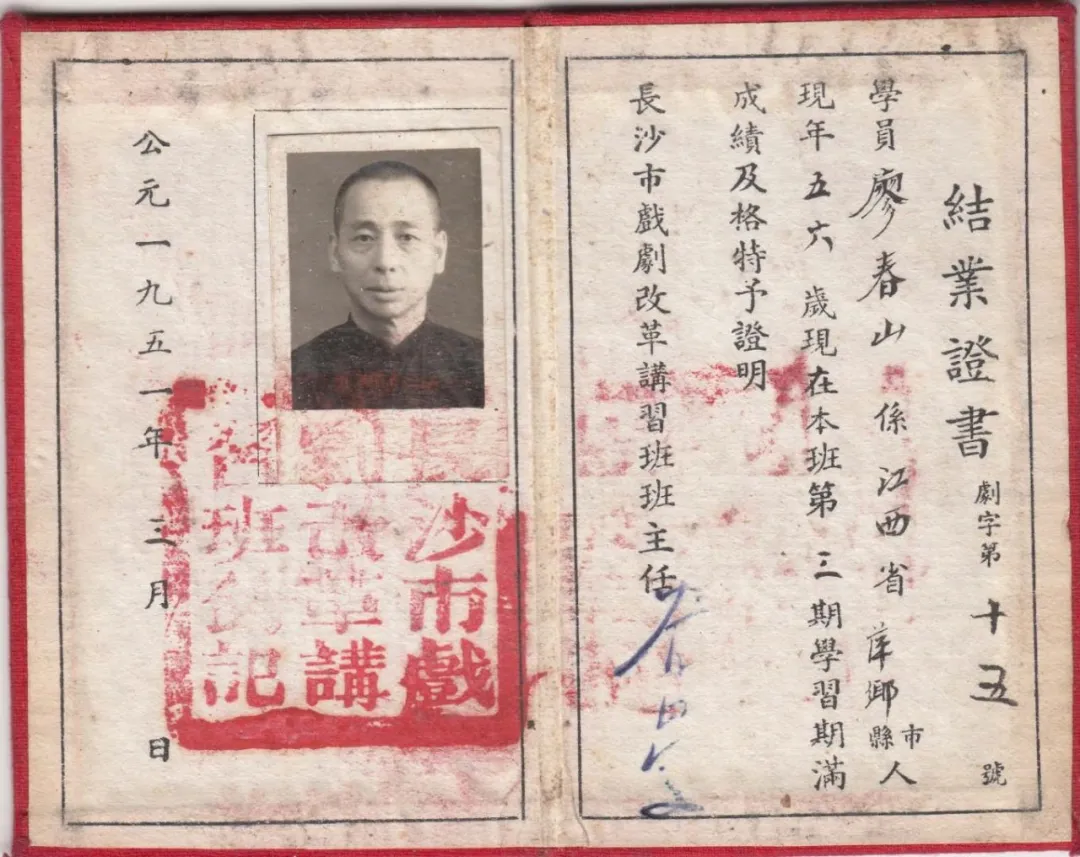 結業證書
劇字第十五號
學員廖春山係江西省萍鄉市縣人
現年五六歲現在本班第三期學習期滿
成績及格特予證明
長沙市戲劇改革講習班班主任
公元一九五一年三月 日
沙市戲
改革講
班 記